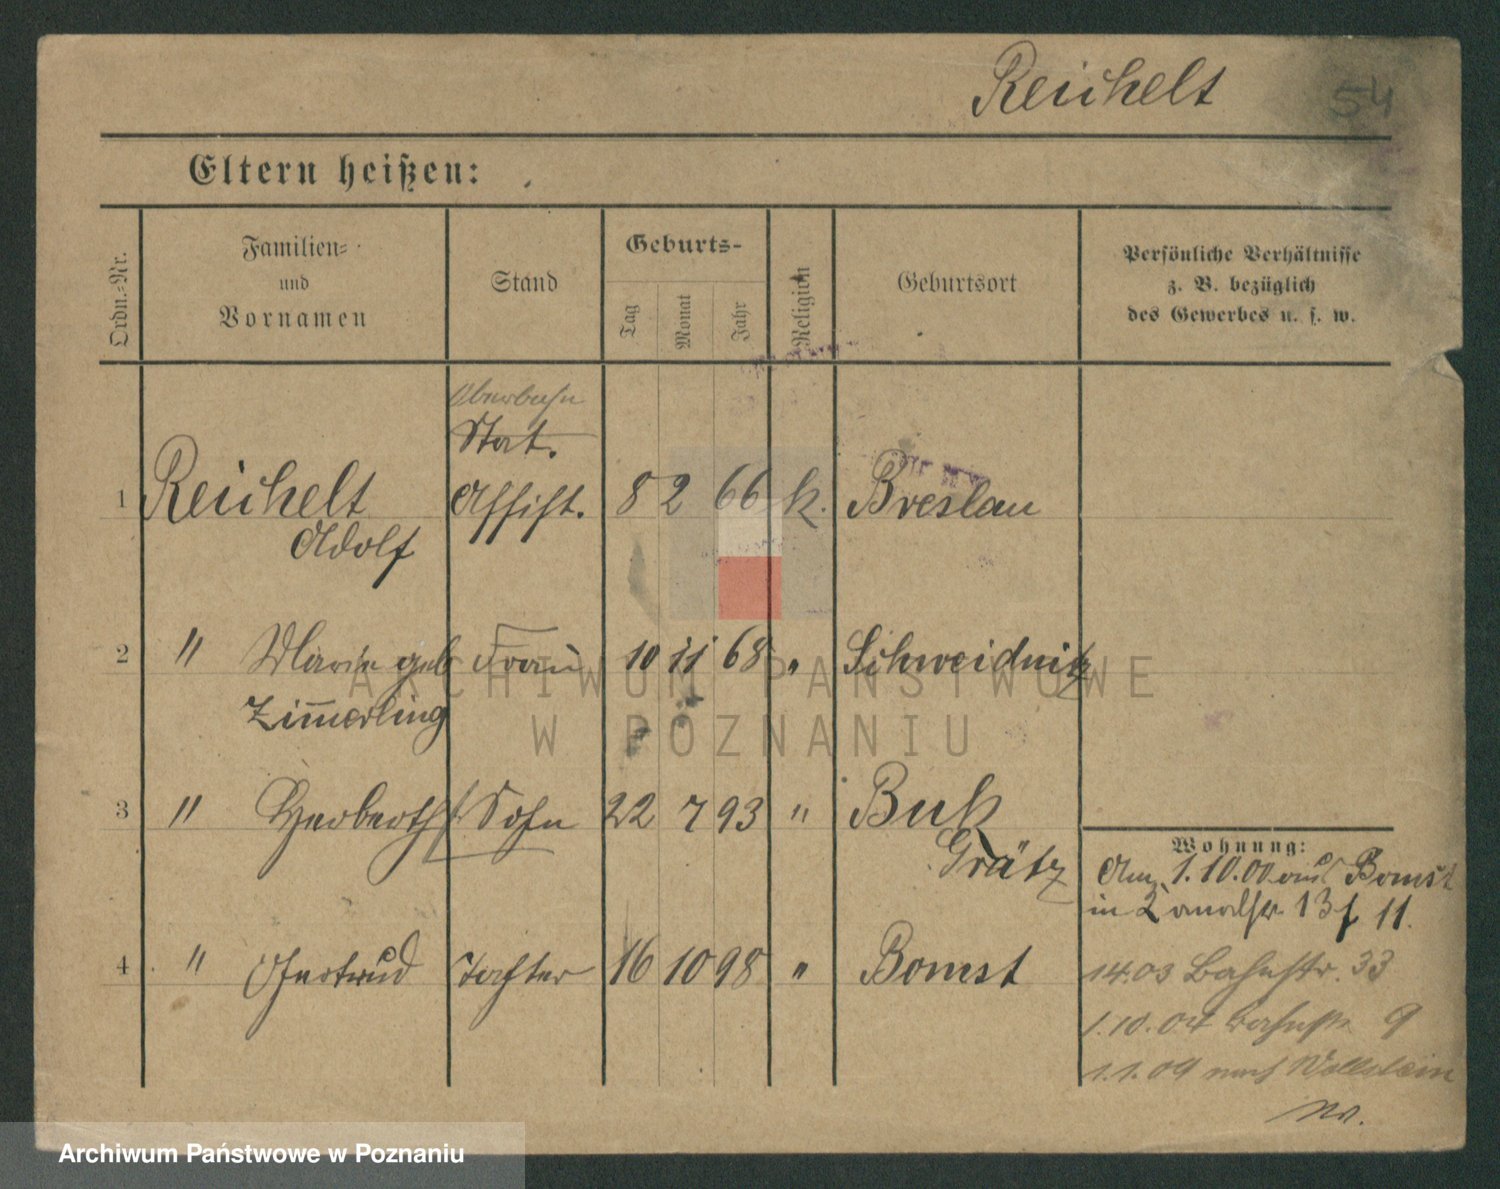 Reichelt 54
Eltern heißen:
Ordn.-Nr.
Familien-
und
Vornamen
Stand
Geburts-
Tag
Monat
Jahr
Religion
Geburtsort
Persönliche Verhältnisse
z. B. bezüglich
des Gewerbes u. s. w.
Oberbahn
Stat.
1 Reichelt Assist. 8 2 66 k. Breslau
Adolf
2 " Marie geb Frau 10 11 68 " Schweidnitz
Zimerling
3 " Herberth Sohn 22 7 93 " Buk
Grätz
4 " Gertrud Tochter 16 10 98 " Bomst
Wohnung:
Am 1.10.00 aus Bomst
in 13 f 11.
1.4.03 Bahnstr. 33
1.10.04 Bahnstr 9
1.1.09 nach Wollstein
ARCHIWUM PAŃSTWOWE
W POZNANIU
Archiwum Państwowe w Poznaniu